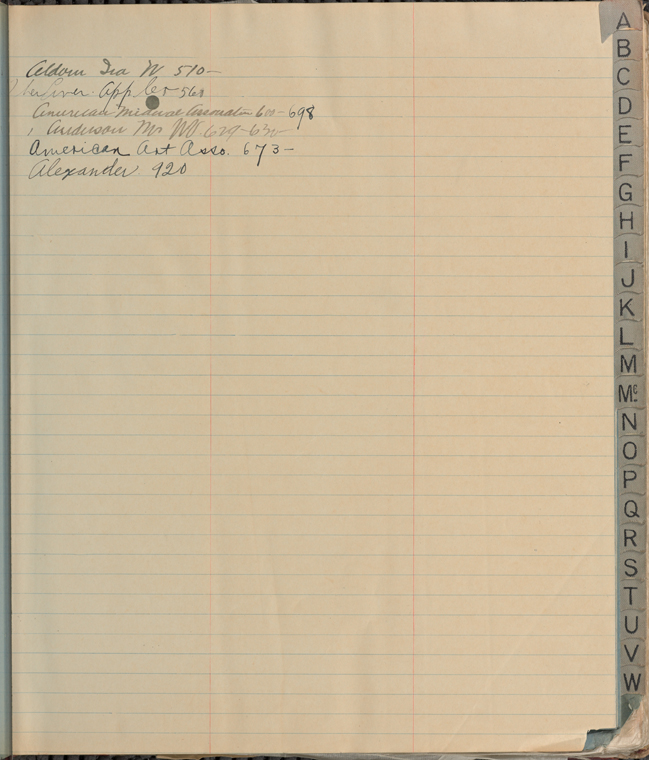 Aldom Ira W 510-
App Co 560
American Medical Association 600-698
Anderson Mr Wm 629-630
American Art Asso. 673-
Alexander 920
A
B
C
D
E
F
G
H
I
J
K
L
M
Mc
N
O
P
Q
R
S
T
U
V
W